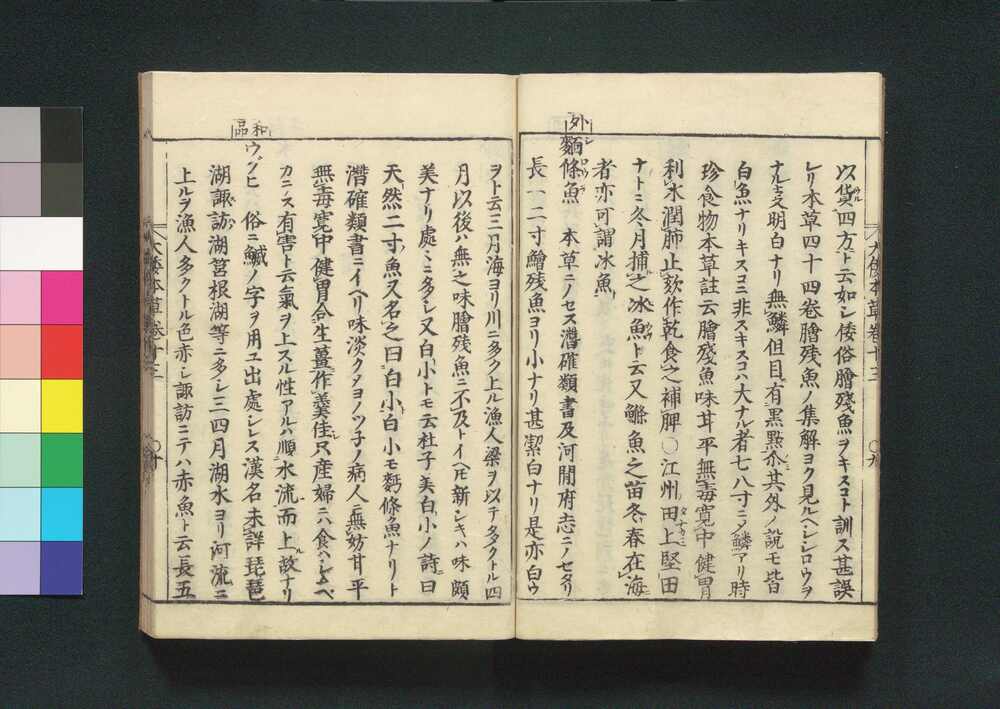 以貨四方ト云如シ倭俗膾殘魚ヲキスコト訓ス甚誤
レリ本草四十四卷膾残魚ノ集解ヨク見ルヘシシロウヲ
ナル支明白ナリ無鱗但目有黒點尒其外ノ說モ皆
白魚ナリキスコニ非スキスコハ大ナル者七八寸ニ乄鱗アリ時
珍食物本草註云膾殘魚味甘平無毒寛中健胃
利水潤肺止欬作乾食之補脾〇江州田上堅田
ナトニ冬月捕之氷魚ト云又鯀魚之苗冬春在海
者亦可謂冰魚
外
麵條魚 本草ニノセス潛確類書及河間府志ニノセタリ
長一二寸鱠残魚ヨリ小ナリ甚潔白ナリ是亦白ウ
大倭本草卷十三 〇九
ヲト云三月海ヨリ川ニ多ク上ル漁人梁ヲ以テ多クトル四
月以後ハ無之味膾残魚ニ不及トイヘ𪜈新シキハ味頗
美ナリ處〻ニ多シ又白小トモ云杜子美白小ノ詩曰
天然二寸魚又名之曰白小白小モ麪條魚ナリト
潛確類書ニイヘリ味淡クタヨノツ子ノ病人ニ無妨甘平
無毒寛中健胃合生薑作羹佳只産婦ニハ食ハシムヘ
カラス有害ト云氣ヲ上スル性アルハ順水流而上故ナリ
和品
ウグヒ 俗ニ鯎ノ字ヲ用ユ出處シレス漢名未詳琵琶
湖諏訪湖筥根湖等ニ多シ三四月湖水ヨリ河流ニ
上ルヲ漁人多クトル色赤シ諏訪ニテハ赤魚ト云長五
大倭本草卷十三 〇十